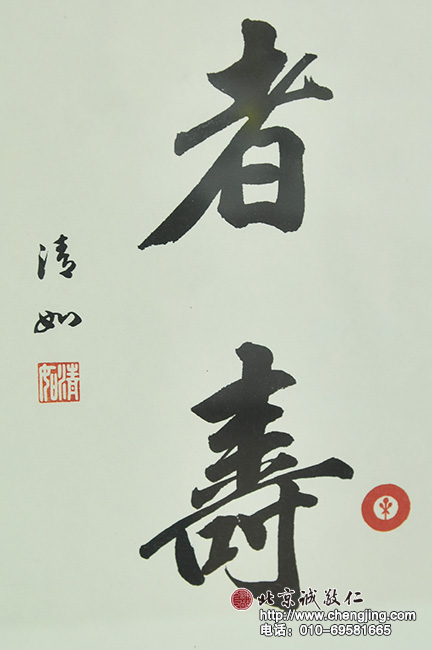 者壽
清如
清如
北京诚敬仁
http://www.chengjing.com
电话：010-69581665